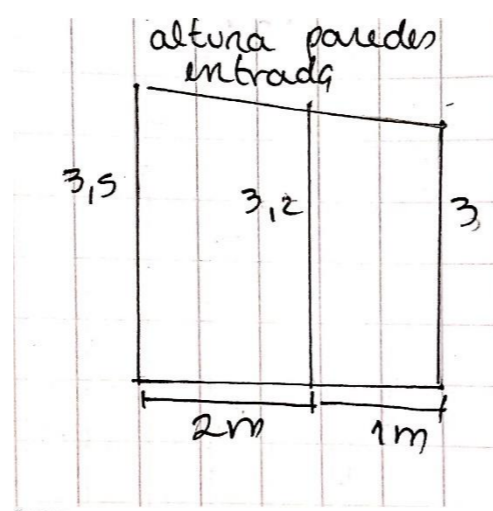 altura paredes
entrada
3,5
3,2
3
2m
1m